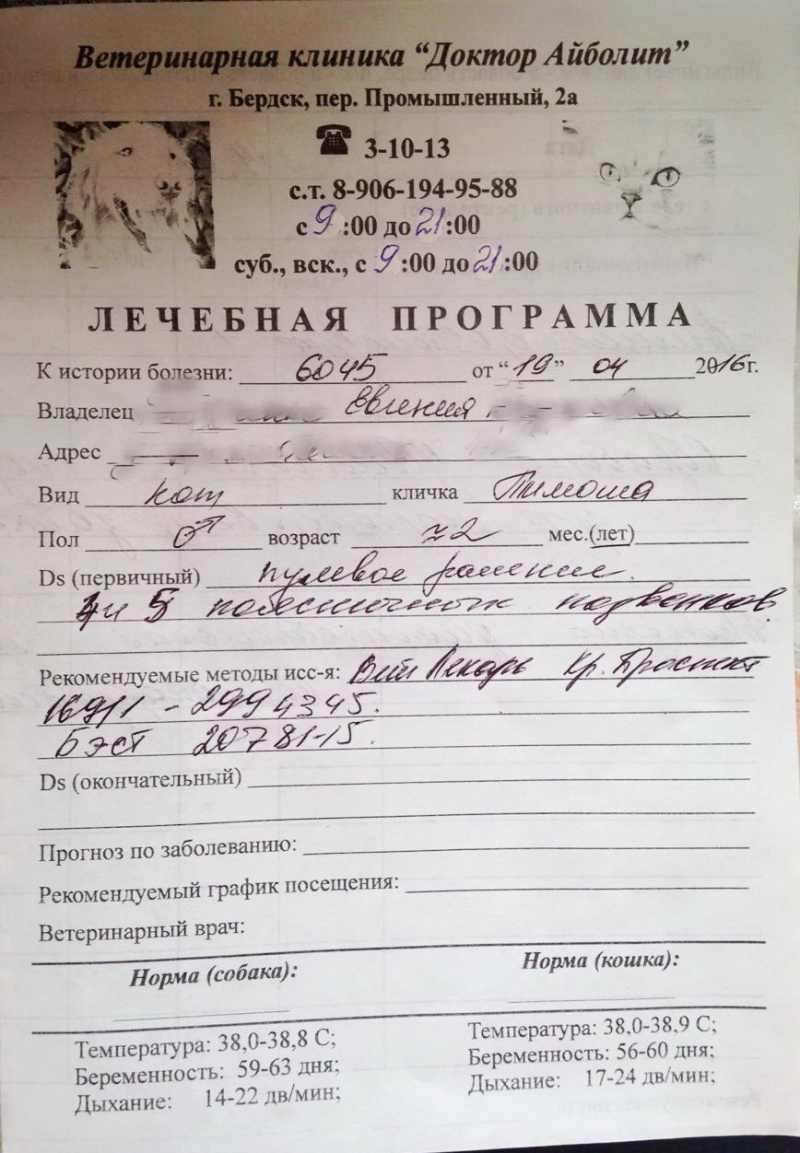 Ветеринарная клиника “Доктор Айболит”
г. Бердск, пер. Промышленный, 2а
☎ 3-10-13
с.т. 8-906-194-95-88
с 9 :00 до 21 :00
суб., вск., с 9 :00 до 21 :00
ЛЕЧЕБНАЯ ПРОГРАММА
К истории болезни: 6045 от “19” 04 2016г.
Владелец Евгения
Адрес
Вид кот кличка Тимоша
Пол ♂ возраст мес.(лет)
Ds (первичный) пулевое ранение.
4 и 5 поясничных позвонков.
Рекомендуемые методы исс-я: Вет Лекарь Кр. Проспект
169/1 - 299 43 45.
Бэст 207 81-15.
Ds (окончательный)
Прогноз по заболеванию:
Рекомендуемый график посещения:
Ветеринарный врач:
Норма (собака):
Температура: 38,0-38,8 С;
Беременность: 59-63 дня;
Дыхание: 14-22 дв/мин;
Норма (кошка):
Температура: 38,0-38,9 С;
Беременность: 56-60 дня;
Дыхание: 17-24 дв/мин;